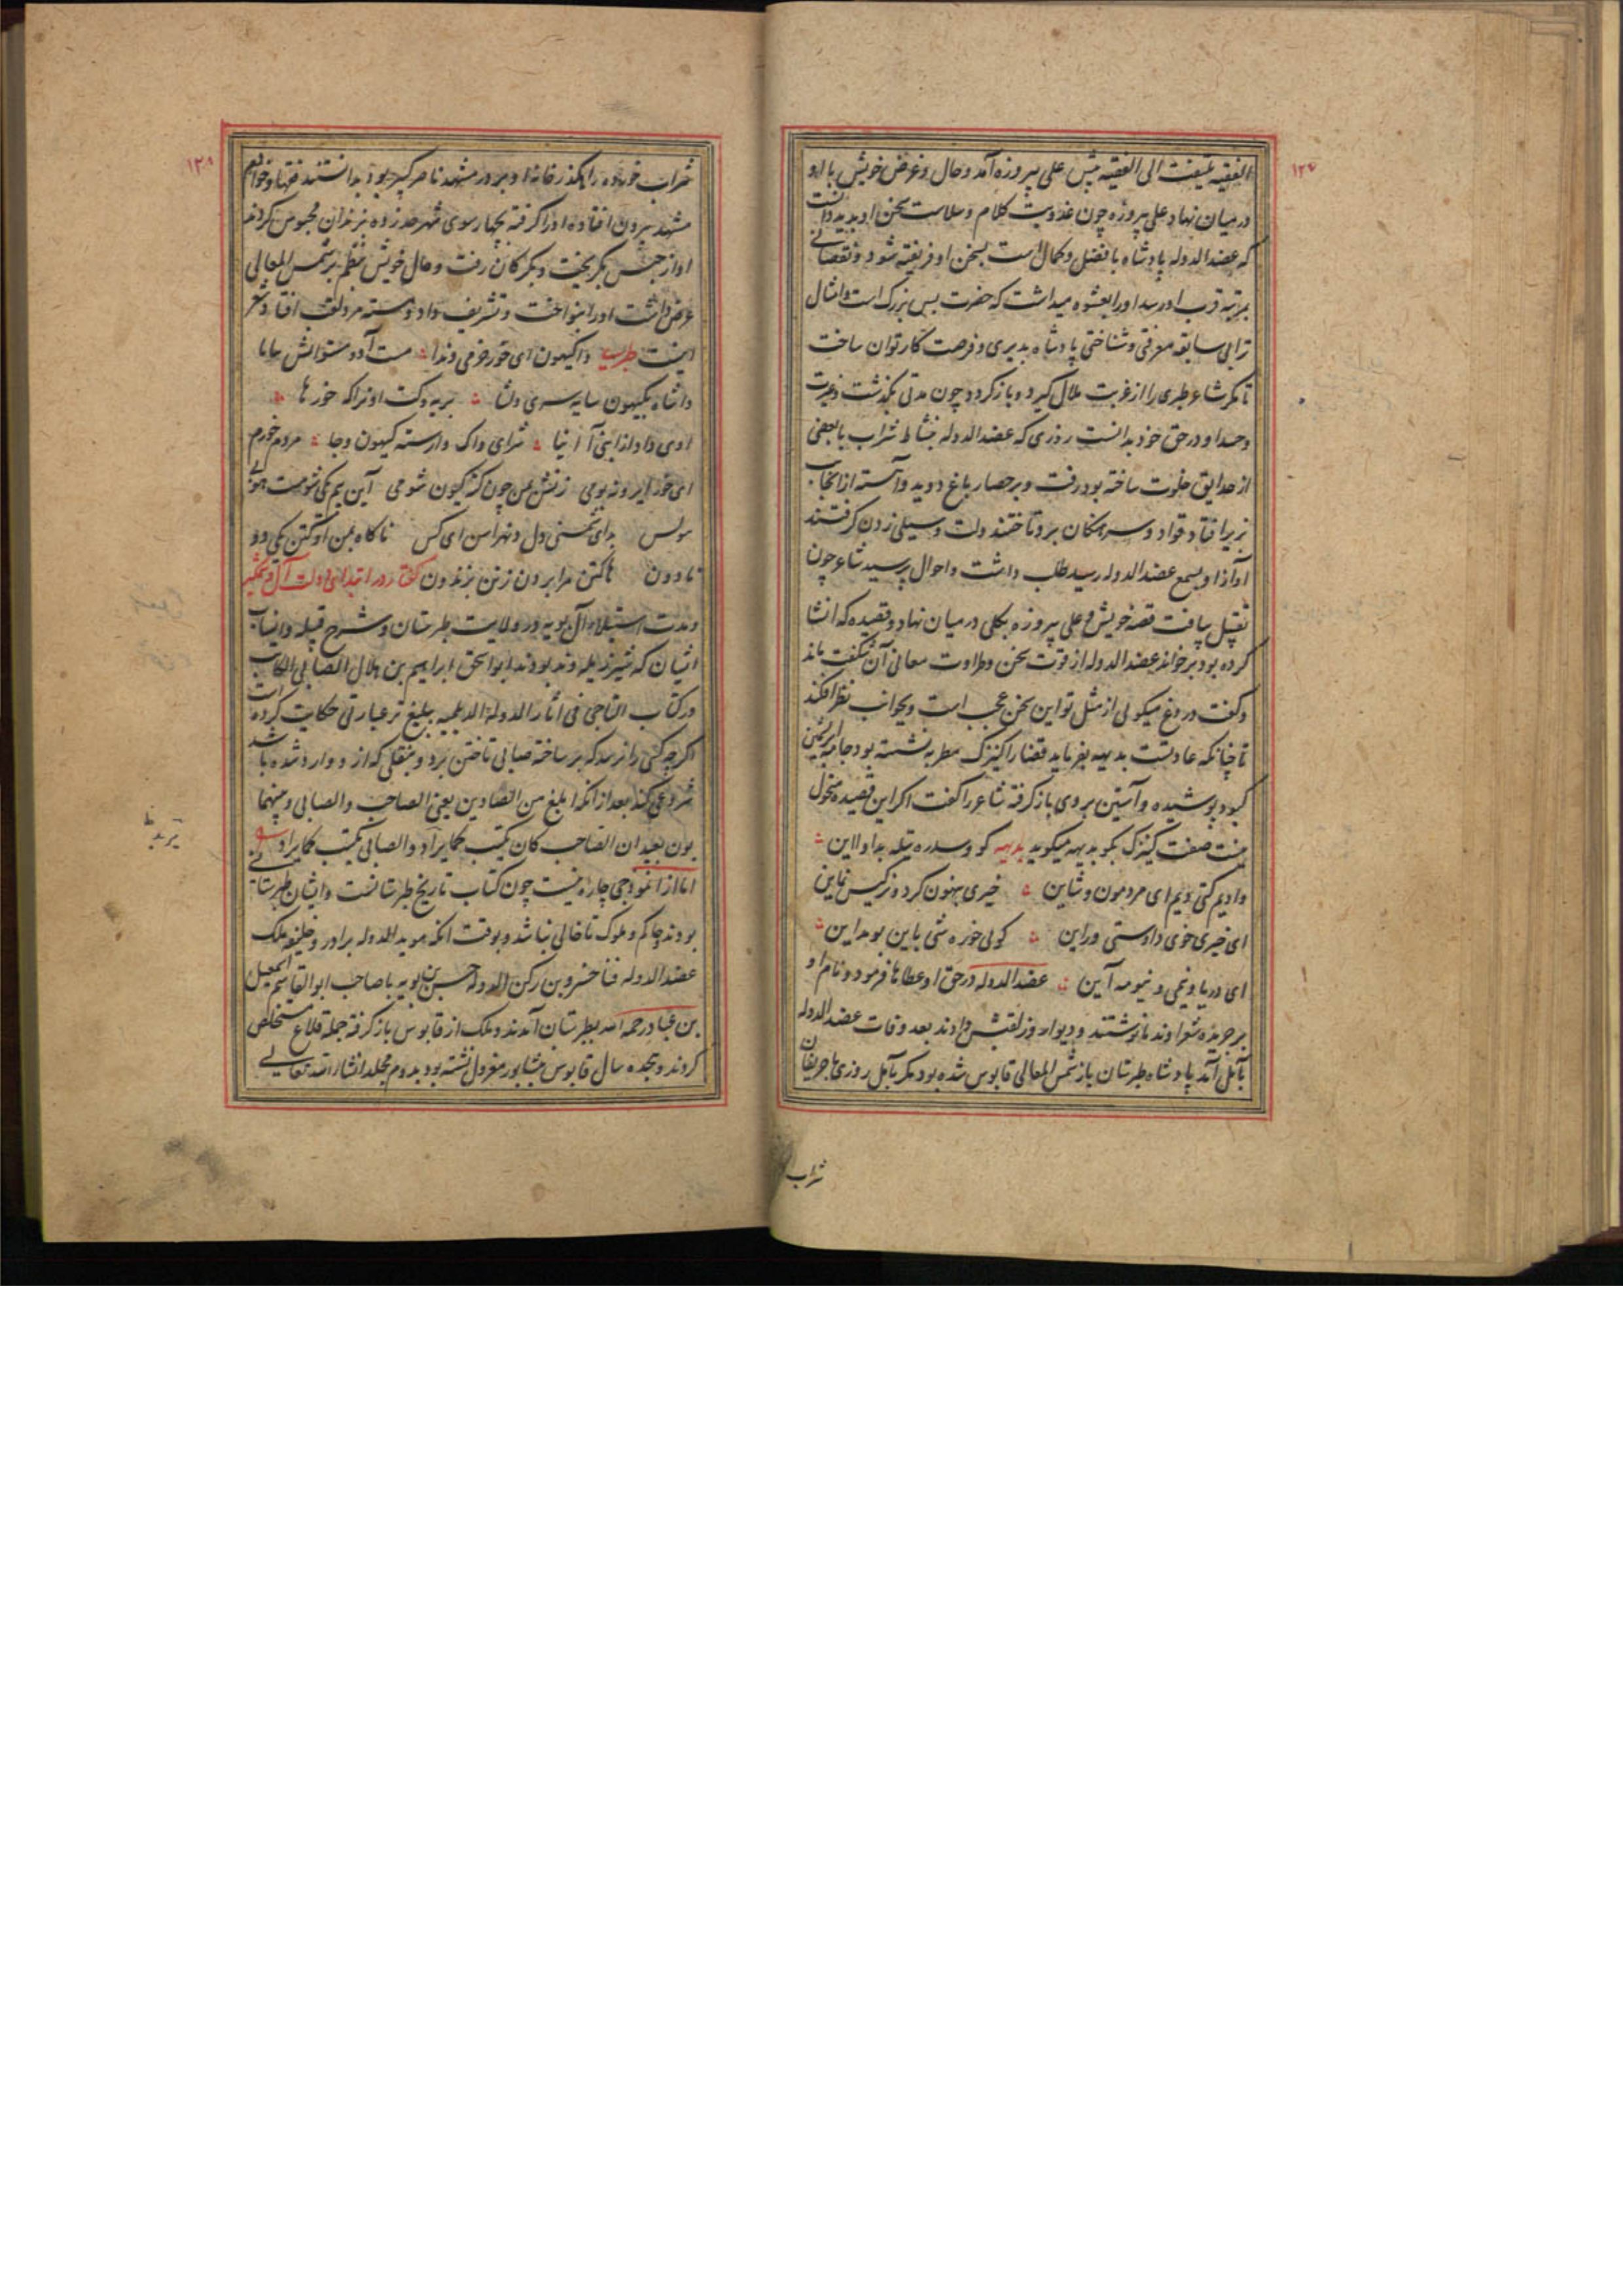 ۱۲۷
الفقیه یلتفت الی الفقیه پیش علی پیروزه آمد و حال و غرض خویش با او
در میان نهاد علی پیروزه چون عذوبت کلام و سلاست سخن او بدید دانست
که عضد الدوله پادشاه با فضل و کمال است بسخن او فریفته شود و نقصانی
بمرتبه قرب او رسد او را بعشوه میداشت که حضرت بس بزرگ است و امثال
ترا بی سابقه معرفتی و شناختی پادشاه بدیری و فرصت کار توان ساخت
تا مگر شاعر طبری را از غربت ملال گیرد و باز گردد چون مدتی بگذشت و غیرت
و حسد او در حق خود بدانست روزی که عضد الدوله بنشاط شراب با بعضی
از حدایق خلوت ساخته بود رفت و بر حصار باغ دوید و آهسته از آنجانب
بزیر افتاد قواد و سرهنگان برو تاختند و لت و سیلی زدن گرفتند
آواز او بسمع عضد الدوله رسید طلب داشت و احوال پرسید شاعر چون
تقبیل یافت قصه خویش و علی پیروزه بکلی در میان نهاد و قصیده که انشا
کرده بود بر خواند عضد الدوله از قوت سخن و طراوت معانی آن شگفت ماند
و گفت دروغ میگوئی از مثل تو این سخن عجب است و بجوانب نظر افکند
تا چنانکه عادتست بدیهه بفرماید قضا را کنیزک مطربه نشسته بود جامه ابریشمین
کبود پوشیده و آستین بروی باز گرفته شاعر را گفت اگر این قصیده منحول
نیست صفت کنیزک بگو بدیهه میگوید بدیهه کو وسدره نیله بدا و ااین
وادیم کتی ویم ای مردمون وشاین خیری بنهون کرد و نرگس نماین
ای خیری خوی داوستی وراین کوئی خوره شی باین بومداین
ای دریا ونمی و نیومه آین عضد الدوله در حق او عطاها فرمود و نام او
بر جریده شعرا وندما نوشتند و دیوار وز لقبش دادند بعد وفات عضد الدوله
بآمل آمد پادشاه طبرستان باز شمس المعالی قابوس شده بود مگر بآمل روزی با حریفان
شراب
۱۲۸
شراب خورده را بگذر خانه او بر در مشهد ناصر کبیر بود بدانستند فقها و خوالم
مشهد بیرون افتاده او را گرفته بچهار سوی شهر حد زده بزندان محبوس کردند
او از حبس بگریخت و بگرگان رفت و حال خویش بنظم بر شمس المعالی
عرض داشت او را بنواخت و تشریف داد و مسته مرد لقب افتاد و شعر
اینست طبریه واکیهون ای خور خرمی وندا مست آدو مستوانش بیابا
واشاه بکیهون سایه سری ونشا بریه وکت او نراکه خورها
اوی داد از اینی آ انیا شرای داک وارسته کیهون وجا مردم خورم
ای خور ایرونه بومی زنش من چون کر کیون شومی آین بم کی شومت هوئی
سولس بدای تخمنی دل ونهراسن ای کس ناکاه بمن او کتن یکی دو
نادون هاکتن مرا برون زنن بزندون گفتار در ابتدای دولت آل وشمگیر
و مدت استیلاء آل بویه در ولایت طبرستان و شرح قبیله و انساب
ایشان که شیرذیله وند بودند ابو اسحق ابراهیم بن هلال الصابی الکاتب
در کتاب التاجی فی اثار الدولة الدیلمیه ببلیغ تر عبارتی حکایت کرده است
اگرچه کسی را نرسد که بر ساخته صابی تاختن برد و بنقلی که از و وارد شده باشد
شروعی کند بعد از انکه ابلغ من الصادین یعنی الصاحب والصابی و بینهما
بون بعید ان الصاحب کان یکتب کما یراد والصابی یکتب کما یراد
اما از انموذجی چاره نیست چون کتاب تاریخ طبرستانست و ایشان بطبرستان
بودند حاکم و ملوک تا خالی نباشد و بوقت انکه موید الدوله برادر و خلیفه ملک
عضد الدوله فناخسرو بن رکن الدوله حسن بن بویه با صاحب ابو القاسم اسمعیل
بن عباد رحمه الله بطبرستان آمدند و ملک از قابوس باز گرفته جمله قلاع مستخلص
کردند و هجده سال قابوس بنشابور معزول نشسته بود بدوم مجلد انشاء الله تعالی